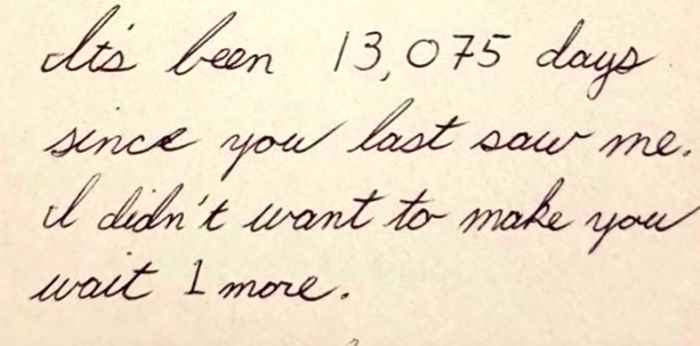 It's been 13,075 days
since you last saw me.
I didn't want to make you
wait 1 more.